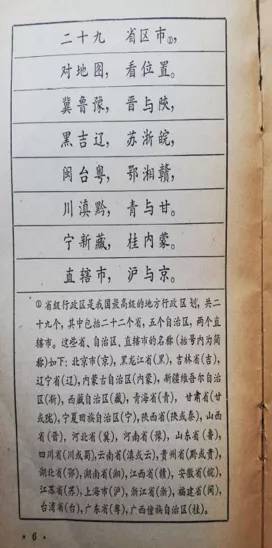 二十九 省区市①，
对地图，看位置。
冀鲁豫，晋与陕，
黑吉辽，苏浙皖，
闽台粤，鄂湘赣，
川滇黔，青与甘。
宁新藏，桂内蒙。
直辖市，沪与京。
① 省级行政区是我国最高级的地方行政区划，共二
十九个，其中包括二十二个省，五个自治区，两个直
辖市。这些省、自治区、直辖市的名称（括号内为简
称）如下：北京市（京），黑龙江省（黑），吉林省（吉），
辽宁省（辽），内蒙古自治区（内蒙），新疆维吾尔自治
区（新），西藏自治区（藏），青海省（青），甘肃省（甘
或陇），宁夏回族自治区（宁），陕西省（陕或秦），山西
省（晋），河北省（冀），河南省（豫），山东省（鲁），
四川省（川或蜀），云南省（滇或云），贵州省（黔或贵），
湖北省（鄂），湖南省（湘），江西省（赣），安徽省（皖），
江苏省（苏），上海市（沪），浙江省（浙），福建省（闽），
台湾省（台），广东省（粤），广西僮族自治区（桂）。
· 6 ·